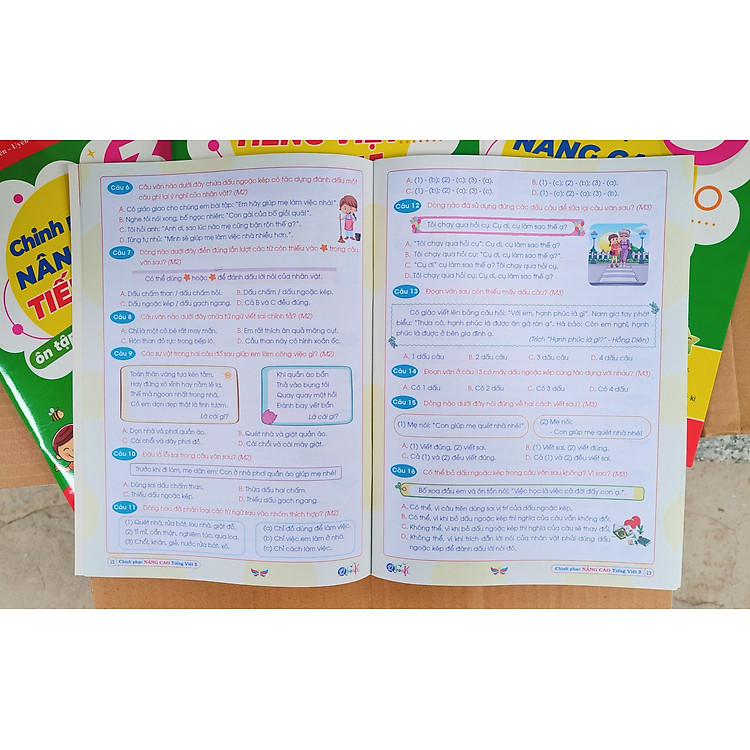 Câu 6 Câu văn nào dưới đây chứa dấu ngoặc kép có tác dụng đánh dấu một
câu ghi lại ý nghĩ của nhân vật? (M2)
A. Cô giáo giao cho chúng em bài tập: "Em hãy giúp mẹ làm việc nhà!"
B. Nghe tôi nói xong, bố ngạc nhiên: "Con gái của bố giỏi quá!".
C. Tôi hỏi anh: "Anh ơi, sao lúc nào mẹ cũng bận rộn thế ạ?".
D. Tùng tự nhủ: "Mình sẽ giúp mẹ làm việc nhà nhiều hơn.".
Câu 7 Dòng nào dưới đây điền đúng lần lượt các từ còn thiếu vào trong câu
văn sau? (M2)
Có thể dùng hoặc để đánh dấu lời nói của nhân vật.
A. Dấu chấm than / dấu chấm hỏi. B. Dấu chấm / dấu ngoặc kép.
C. Dấu ngoặc kép / dấu gạch ngang. D. Cả B và C đều đúng.
Câu 8 Câu văn nào dưới đây chứa từ ngữ viết sai chính tả? (M2)
A. Chị là một cô bé rất may mắn. B. Em rất thích ăn quả mãng cụt.
C. Hòn than đỏ rực trong bếp lò. D. Cầu than này có hình xoắn ốc.
Câu 9 Các sự vật trong hai câu đố sau giúp em làm công việc gì? (M2)
Toàn thân vàng tựa kén tằm,
Hay đứng xó xỉnh hay nằm lê la.
Thế mà ngoan nhất trong nhà,
Có em dọn dẹp thật là tinh tươm.
Là cái gì?
Khi quần áo bẩn
Thả vào bụng tôi
Quay quay một hồi
Đánh bay vết bẩn
Là cái gì?
A. Dọn nhà và phơi quần áo. B. Quét nhà và giặt quần áo.
C. Cái chổi và dây phơi đồ. D. Cái chổi và cái máy giặt.
Câu 10 Đâu là lỗi sai trong câu văn sau? (M2)
Trước khi đi làm, mẹ dặn em: Con ở nhà phơi quần áo giúp mẹ nhé!
A. Dùng sai dấu chấm than. B. Thừa dấu hai chấm.
C. Thiếu dấu ngoặc kép. D. Thiếu dấu gạch ngang.
Câu 11 Dòng nào đã phân loại các từ ngữ sau vào nhóm thích hợp? (M2)
(1) Quét nhà, rửa bát, lau nhà, giặt đồ.
(2) Tỉ mỉ, cẩn thận, nghiêm túc, qua loa.
(3) Chổi, khăn, giẻ, nước rửa bát, xô.
(a) Chỉ đồ dùng để làm việc.
(b) Chỉ việc em làm ở nhà.
(c) Chỉ cách làm việc.
12 Chinh phục NÂNG CAO Tiếng Việt 3
A. (1) - (b); (2) - (c); (3) - (a). B. (1) - (c); (2) - (b); (3) - (a).
C. (1) - (b); (2) - (a); (3) - (c). D. (1) - (c); (2) - (a); (3) - (b).
Câu 12 Dòng nào đã sử dụng đúng các dấu câu để sửa lại câu văn sau? (M3)
Tôi chạy qua hỏi cụ: Cụ ơi, cụ làm sao thế ạ?
A. "Tôi chạy qua hỏi cụ": Cụ ơi, cụ làm sao thế ạ?
B. Tôi chạy qua hỏi cụ: "Cụ ơi, cụ làm sao thế ạ?".
C. "Cụ ơi" cụ làm sao thế ạ? Tôi chạy qua hỏi cụ.
D. Tôi chạy qua hỏi cụ: Cụ ơi, cụ làm sao thế ạ?
Câu 13 Đoạn văn sau còn thiếu mấy dấu câu? (M3)
Cô giáo viết lên bảng câu hỏi: "Với em, hạnh phúc là gì". Nam giơ tay phát
biểu: "Thưa cô, hạnh phúc là được ăn gà rán ạ". Hà bảo: Còn em nghĩ, hạnh
phúc là được ở bên gia đình ạ.
(Trích "Hạnh phúc là gì?" - Hồng Diên)
A. 1 dấu câu B. 2 dấu câu C. 3 dấu câu D. 4 dấu câu
Câu 14 Đoạn văn ở câu 13 có mấy dấu ngoặc kép cùng tác dụng với nhau? (M3)
A. Có 1 dấu B. Có 2 dấu C. Có 3 dấu D. Có 4 dấu
Câu 15 Dòng nào dưới đây nói đúng về hai cách viết sau? (M3)
(1) Mẹ nói: "Con giúp mẹ quét nhà nhé!".
(2) Mẹ nói:
- Con giúp mẹ quét nhà nhé!
A. (1) Viết đúng, (2) viết sai. B. (1) Viết sai, (2) viết đúng.
C. Cả (1) và (2) đều viết đúng. D. Cả (1) và (2) đều viết sai.
Câu 16 Có thể bỏ dấu ngoặc kép trong câu văn sau không? Vì sao? (M3)
Bố xoa đầu em và ôn tồn nói: "Việc học là việc cả đời đấy con ạ.".
A. Có thể, vì câu trên dùng sai vị trí của dấu ngoặc kép.
B. Có thể, vì khi bỏ dấu ngoặc kép thì nghĩa của câu vẫn không đổi.
C. Không thể, vì khi bỏ dấu ngoặc kép thì nghĩa của câu sẽ thay đổi.
D. Không thể, vì khi trích dẫn lời nói của nhân vật phải dùng dấu
ngoặc kép để đánh dấu lời nói đó.
Chinh phục NÂNG CAO Tiếng Việt 3 13